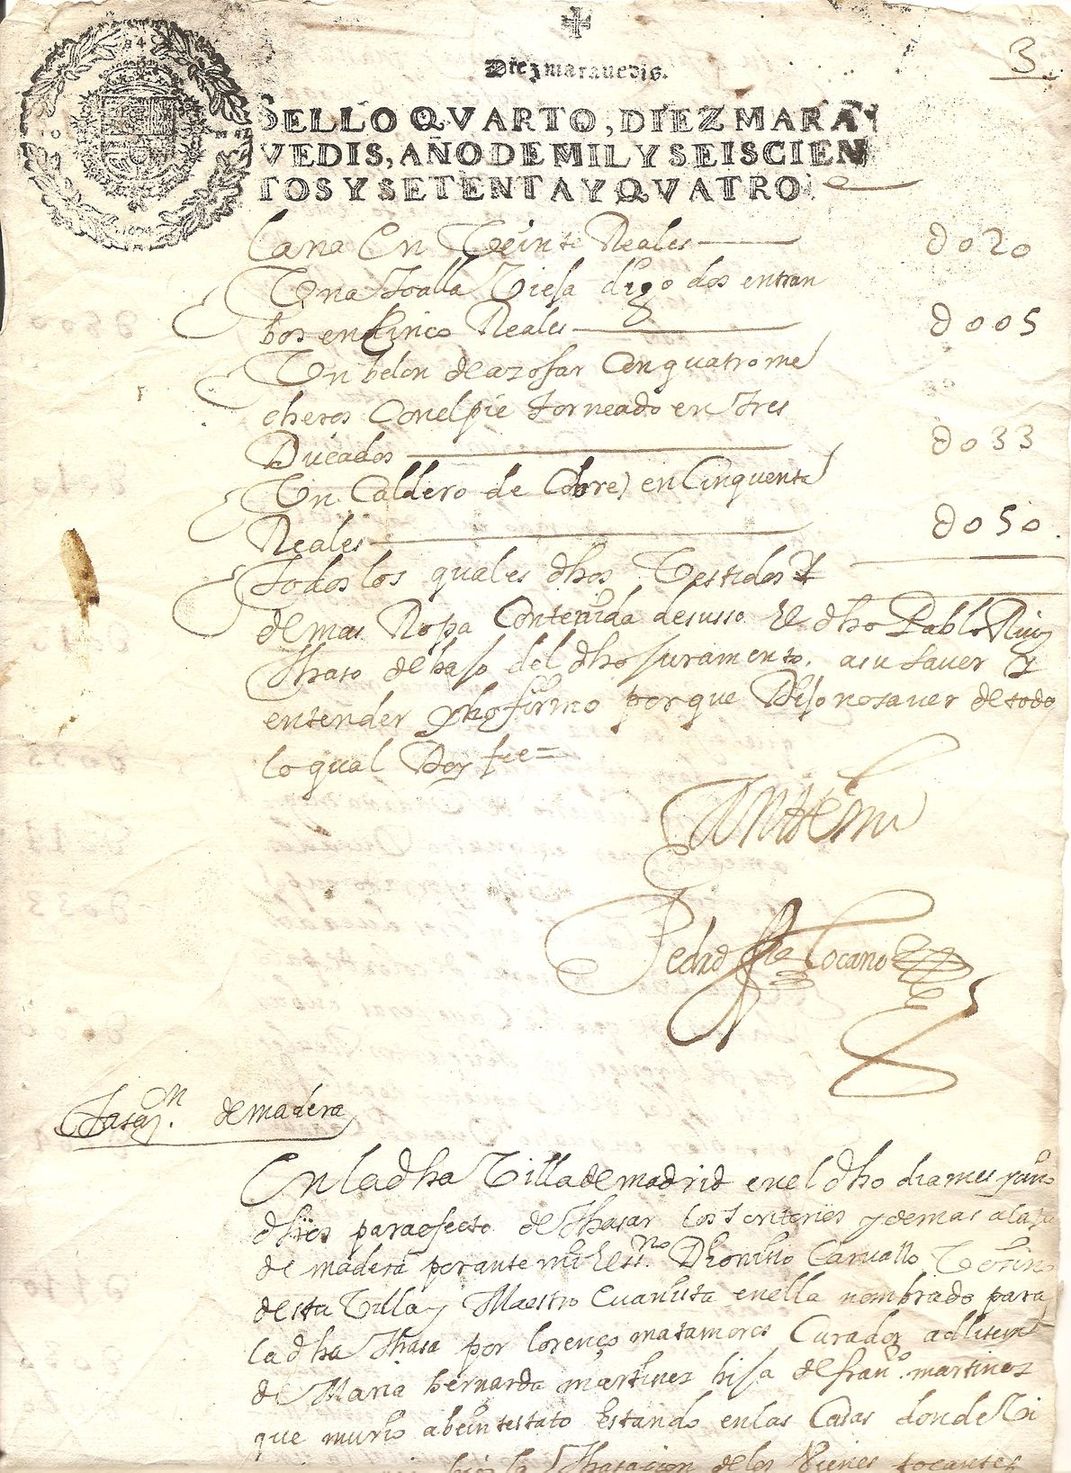 3
Diez maravedis.
SELLO QVARTO, DIEZ MARA
VEDIS, AÑO DE MIL Y SEISCIEN
TOS Y SETENTA Y QVATRO
lana En Veinte Reales d020
Vna toalla Viexa digo dos entran
bos en Cinco Reales d005
Vn belon de azofar Con quatro me
cheros Con el pie torneado en tres
Ducados d033
Vn Caldero de Cobre en Cinquenta
Reales d050
todos los quales dhos Vestidos y
demas Ropa Contenida desusso El dho Pablo Ruiz
thaso debajo del dho juramento. a su saver y
entender y no firmo porque Dijo no saver de todo
lo qual Doy fee =
Ante mi
Pedro Locano
Tasaon. de madera
En la dha Villa de madrid en el dho dia mes y año
dhos para efecto de thasar los y demas alaja
de madera por ante mi el essno. Dionisio Carvallo Veçino
desta Villa y Maestro Evanista en ella nombrado para
la dha thasa por lorenço matamoros Curador adlitem
de Maria bernarda martinez hija de franco. martinez
que murio abintestato Estando en las Casas donde Vi
hiço la thasacion de los Vienes tocantes